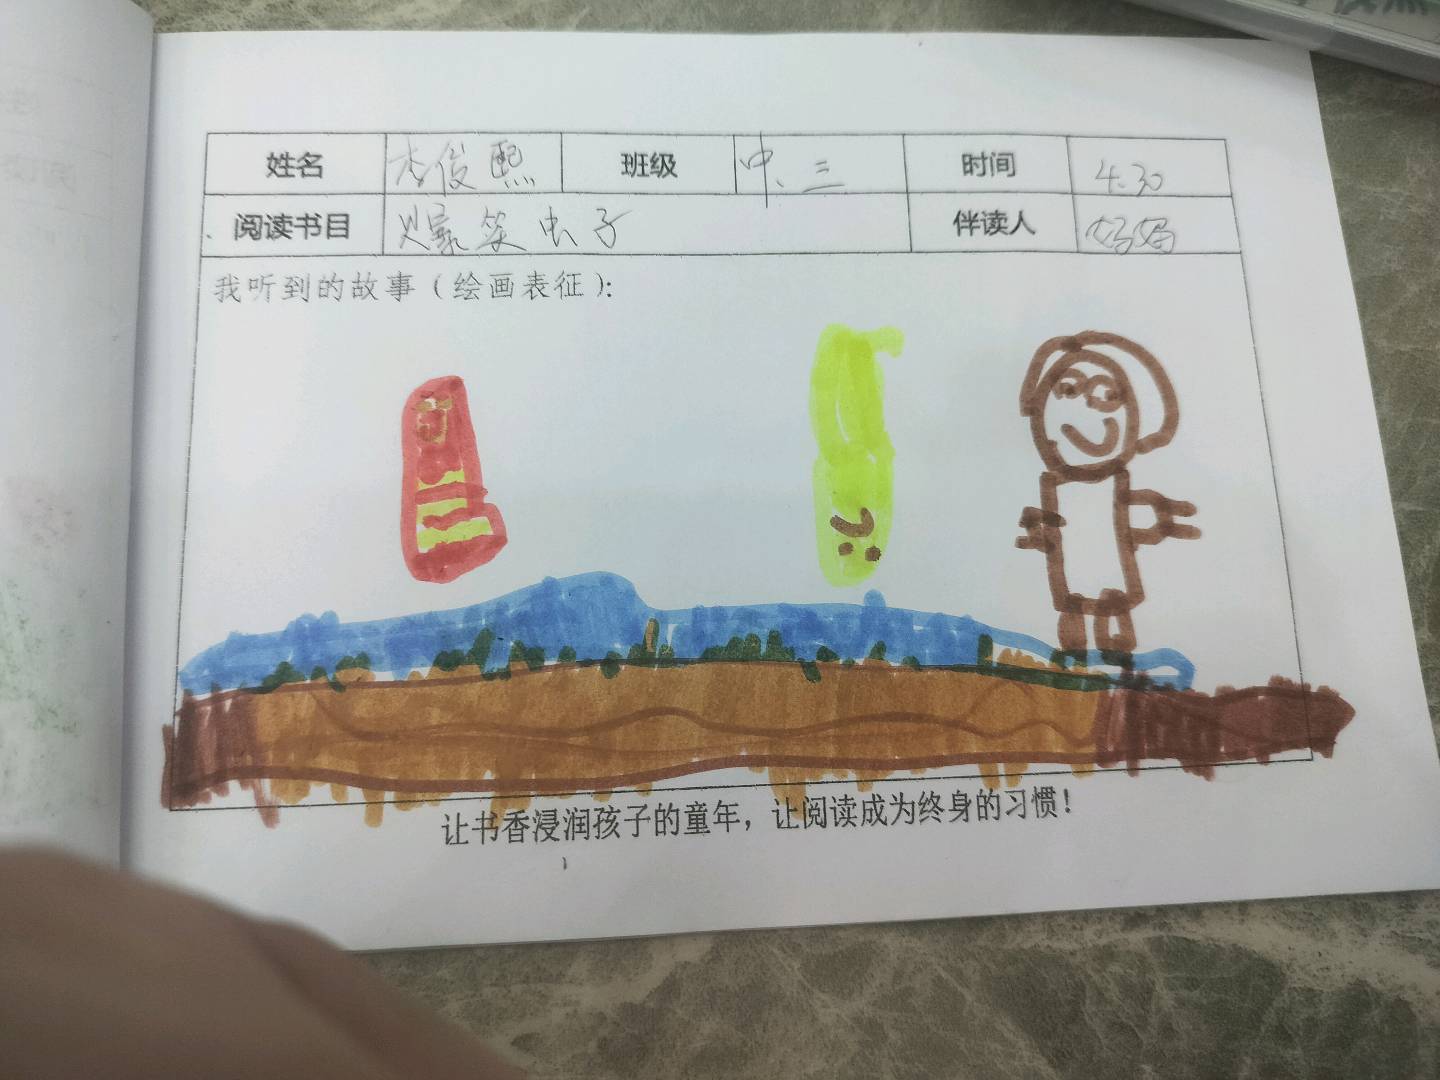 姓名 李俊熙 班级 中三 时间 4.30
阅读书目 爆笑虫子 伴读人 妈妈
我听到的故事（绘画表征）：
让书香浸润孩子的童年，让阅读成为终身的习惯！